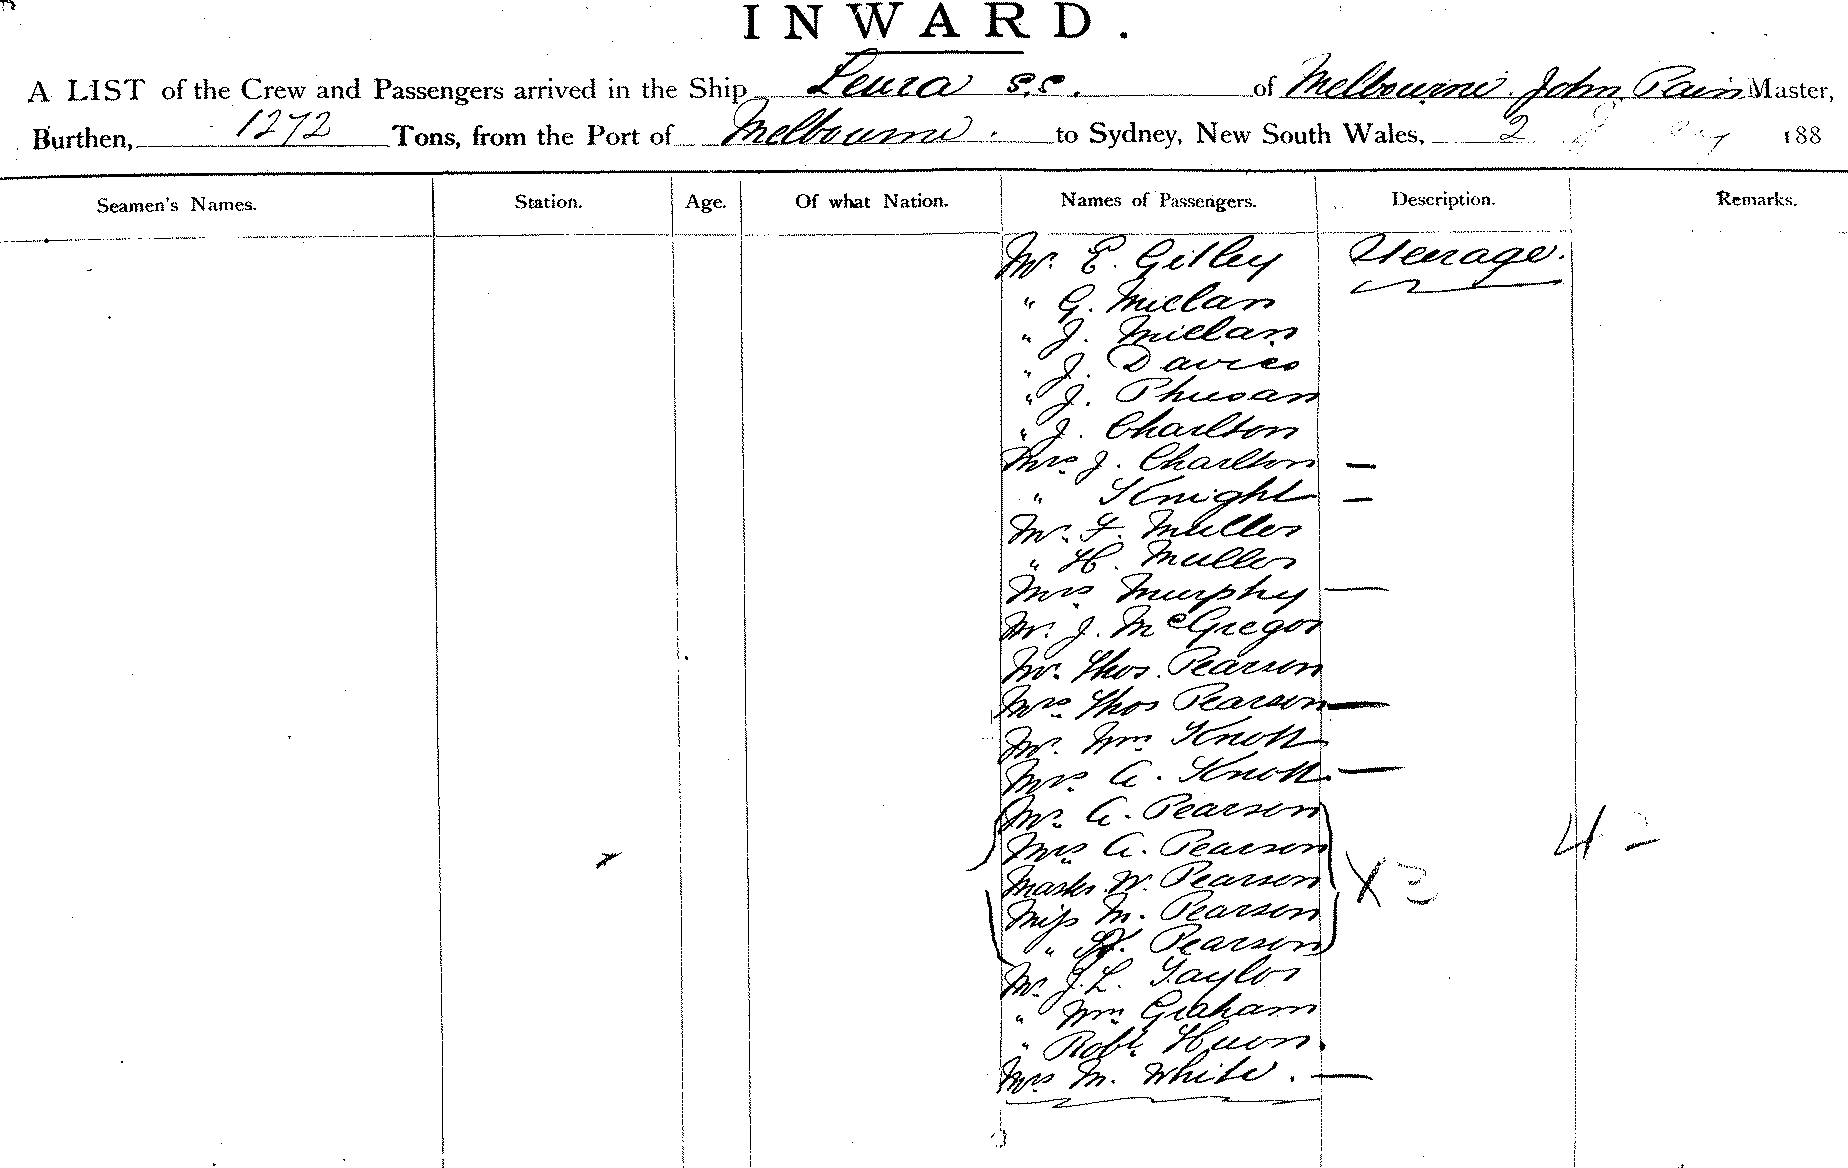 INWARD.
A LIST of the Crew and Passengers arrived in the Ship Leura s.s. of Melbourne. John Pain Master,
Burthen, 1272 Tons, from the Port of Melbourne. to Sydney, New South Wales, 2 188
Seamen's Names. Station. Age. Of what Nation. Names of Passengers. Description. Remarks.
Mr. E. Gilley Steerage.
" G. Millan
" J. Millan
" J. Davies
" J.
" J. Charlton
Mrs J. Charlton —
" Knight —
Mr. F. Muller
" H. Muller
Mrs Murphy —
Mr. J. McGregor
Mr. Thos. Pearson
Mrs. Thos Pearson —
Mr. Wm Knott
Mrs. A. Knott. —
Mr. A. Pearson
Mrs A. Pearson
Master W. Pearson X
Miss M. Pearson
" Pearson
Mr J.L. Taylor
" Wm Graham
" Robt. Huon.
Mrs M. White. —